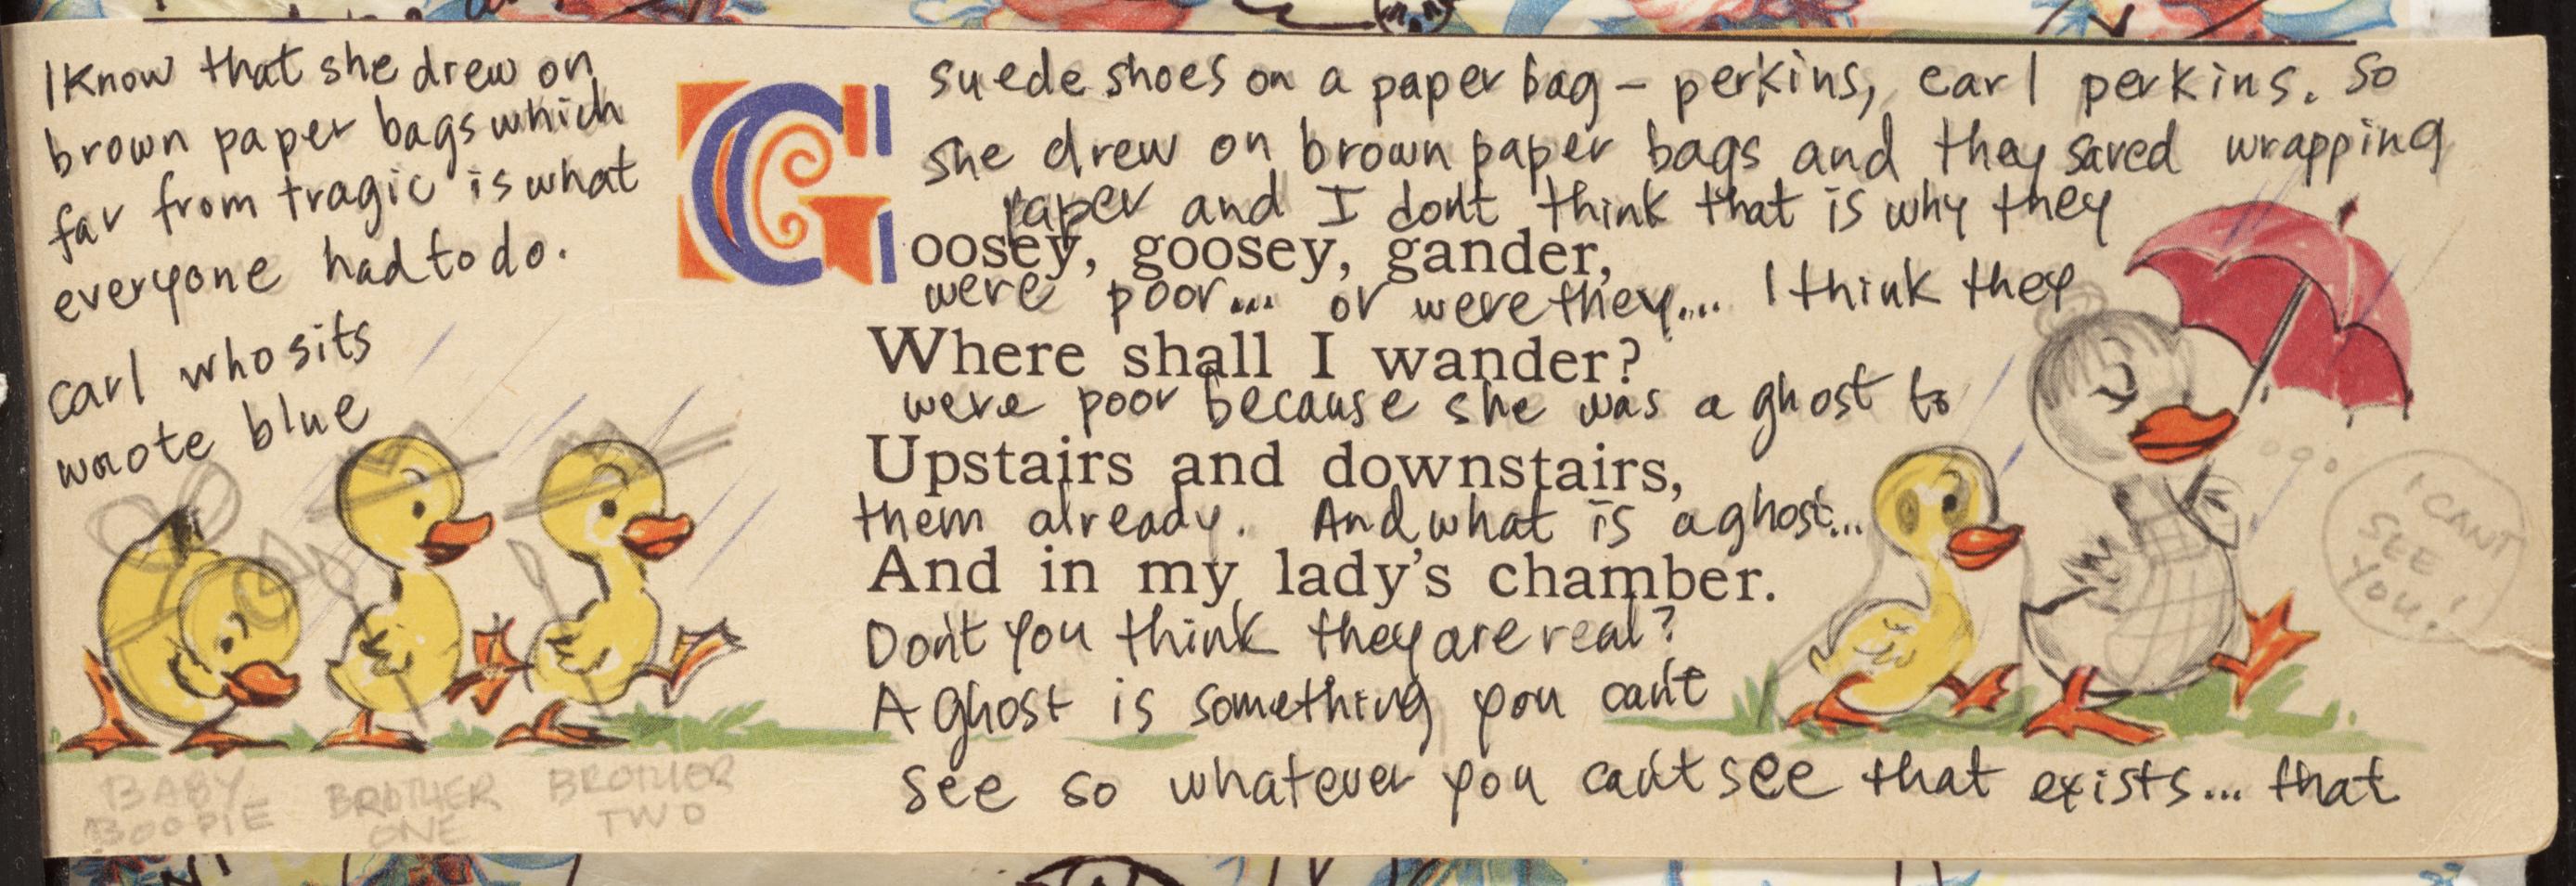 I Know that she drew on
brown paper bags which
far from tragic is what
everyone had to do.
carl who sits
wrote blue
suede shoes on a paper bag – perkins, carl perkins. So
she drew on brown paper bags and they saved wrapping
paper and I dont think that is why they
Goosey, goosey, gander,
were poor... or were they.... I think they
Where shall I wander?
were poor because she was a ghost to
Upstairs and downstairs,
them already. And what is a ghost...
And in my lady's chamber.
Don't you think they are real?
A ghost is something you can't
see so whatever you can't see that exists... that
I CANT
SEE
YOU!
BABY
BOOPIE
BROTHER
ONE
BROTHER
TWO